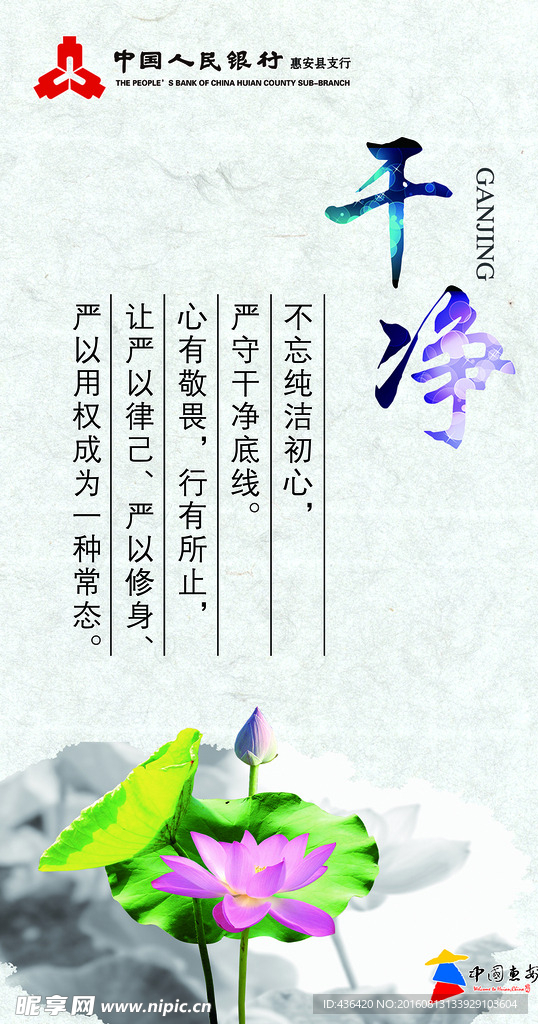 中国人民银行 惠安县支行
THE PEOPLE'S BANK OF CHINA HUIAN COUNTY SUB-BRANCH
干净
GANJING
不忘纯洁初心，
严守干净底线。
心有敬畏，行有所止，
让严以律己、严以修身、
严以用权成为一种常态。
中国惠安
Welcome to Huian,China
昵享网 www.nipic.cn
ID:436420 NO:20160813133929103604